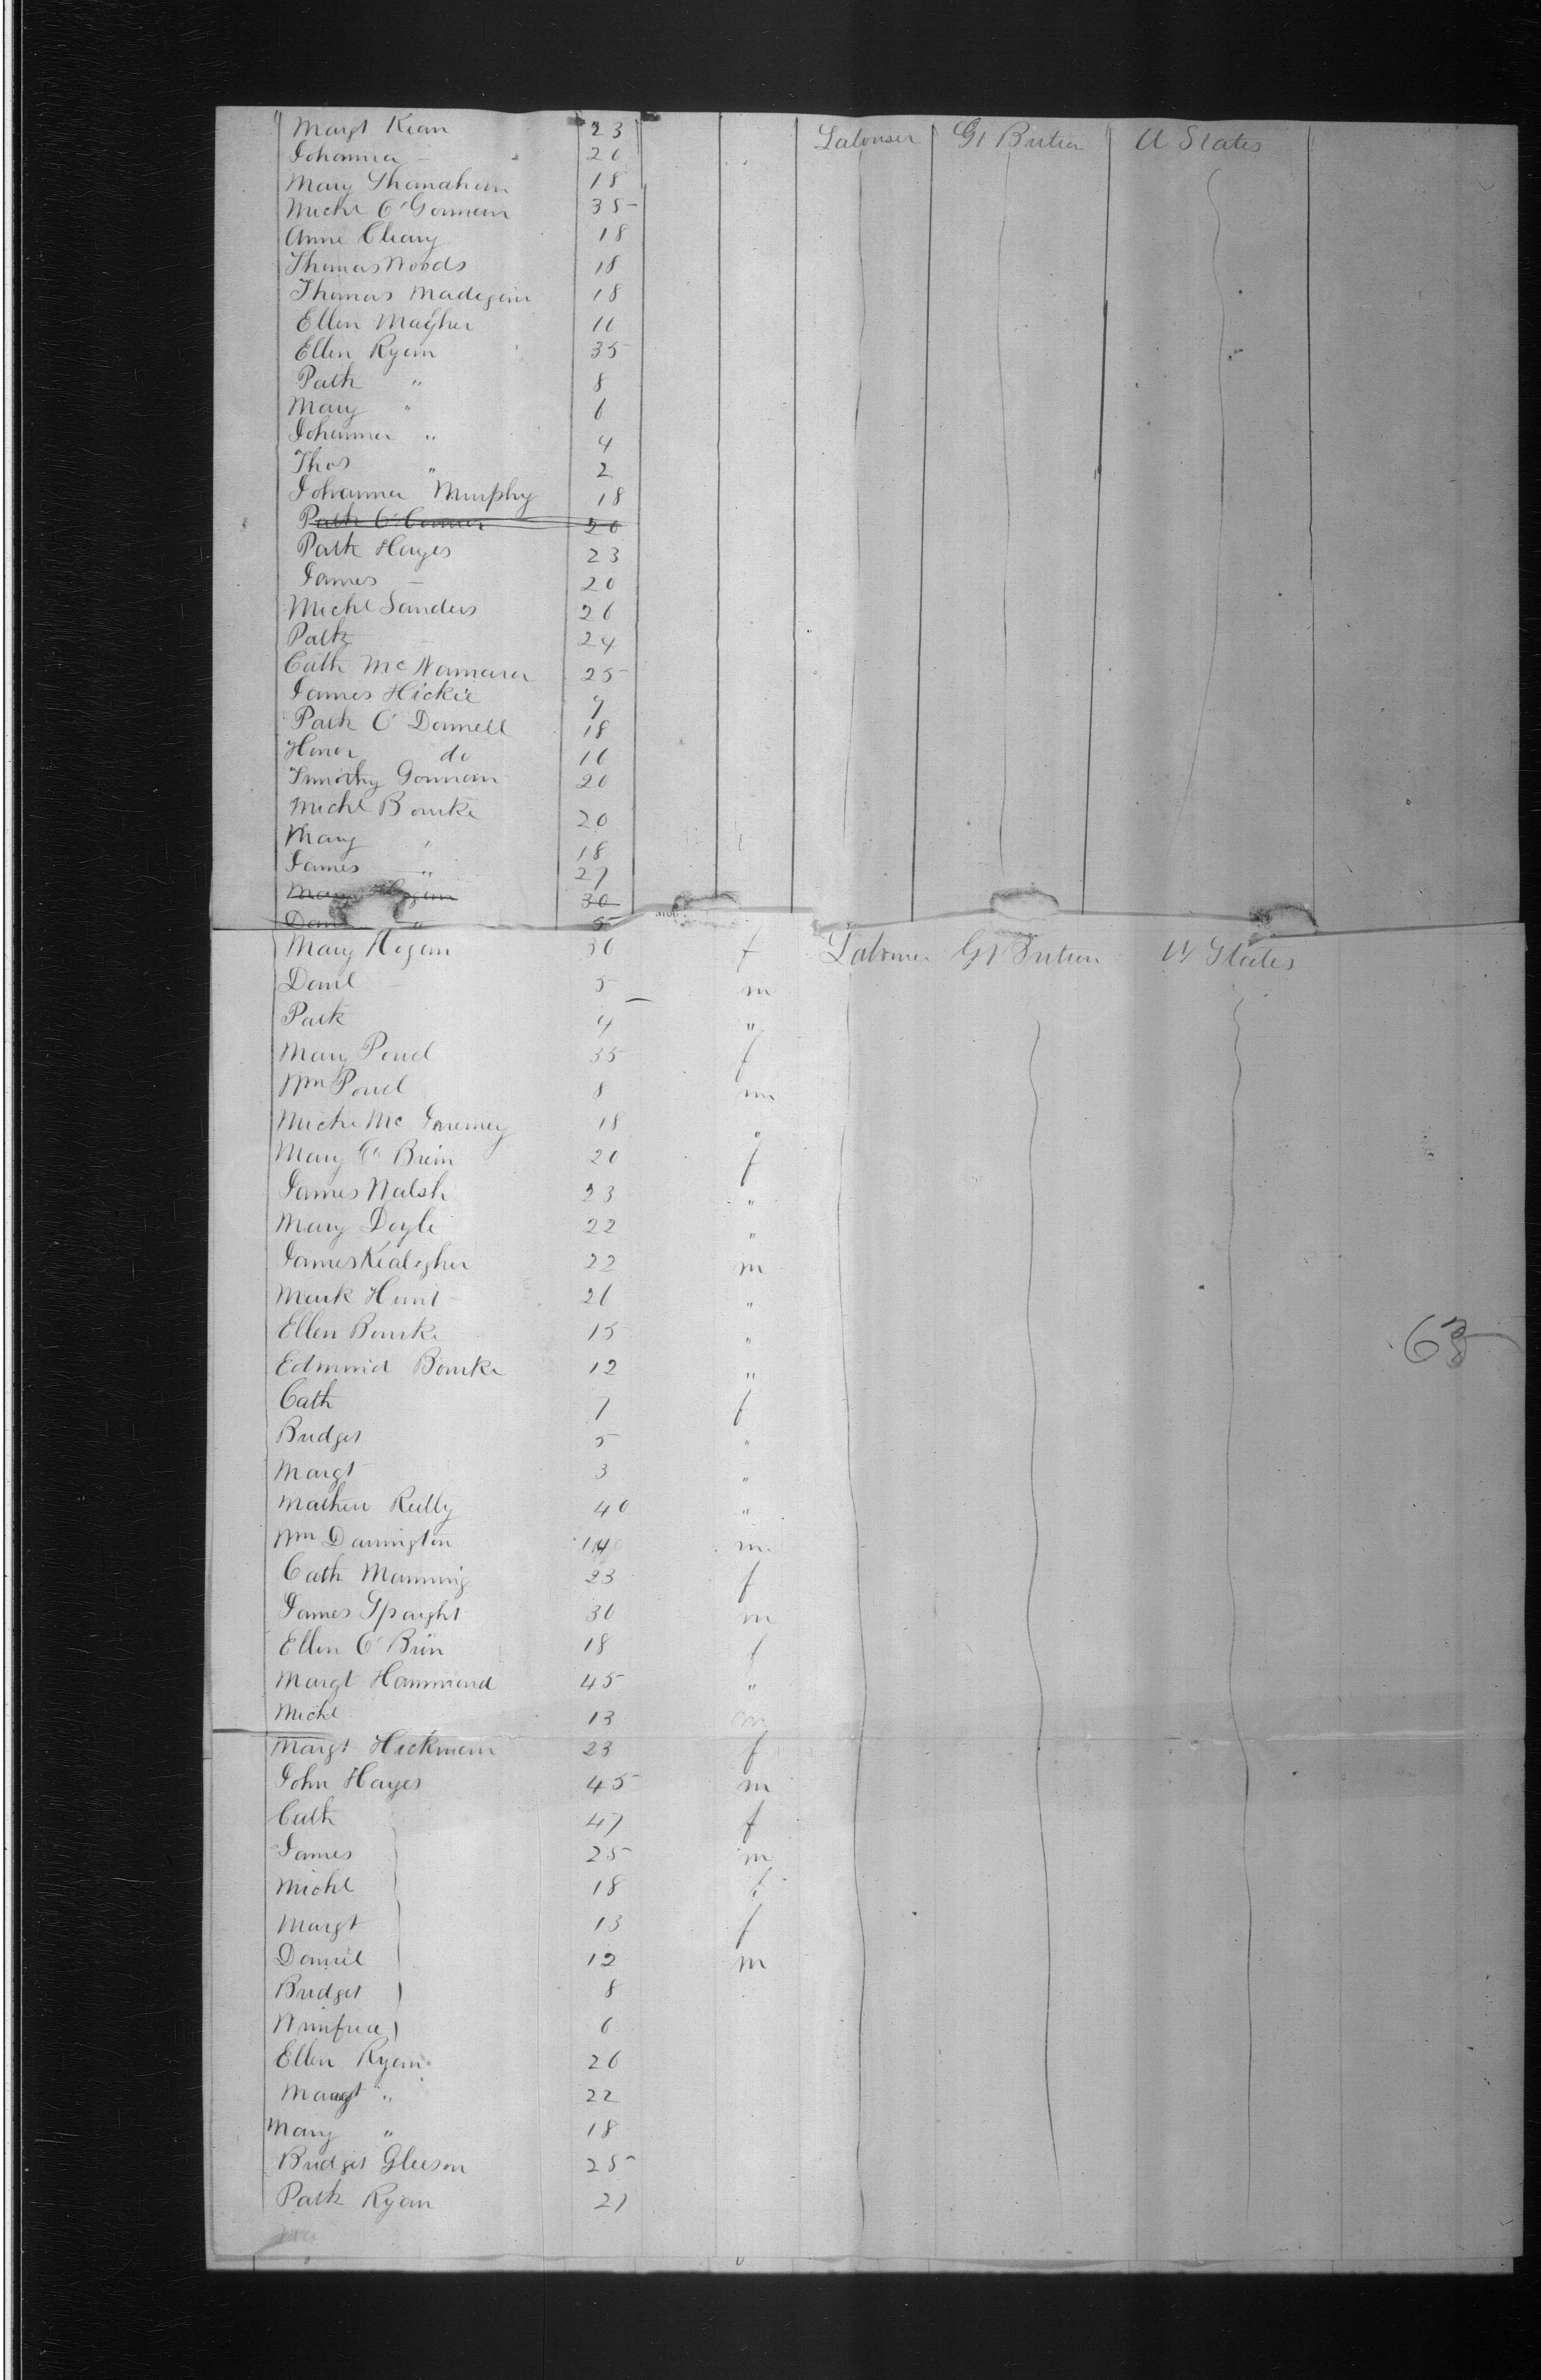 Margt Kean 23 Labourer Gt Britien U States
Johanna - 20
Mary Shanahan 18
Michl O'Gorman 35
Anne Cleary 18
Thomas Woods 18
Thomas Madegan 18
Ellen Magher 16
Ellen Ryan 35
Patk " 8
Mary " 6
Johanna " 4
Thos " 2
Johanna Murphy 18
Patk O'Connor 20
Patk Hayes 23
James - 20
Michl Sanders 26
Patk 24
Cath McNamara 25
James Hickie 7
Patk O'Donnell 18
Honor do 16
Timothy Gorman 20
Michl Bourke 20
Mary " 18
James " 27
Mary Hogan 30
Danl " 5
Mary Hogan 30 f Labourer Gt Britien U States
Danl - 5 m
Patk 4 "
Mary Powel 35 f
Wm Powel 8 m
Michl McInerney 18 "
Mary O'Brien 20 f
James Walsh 23 "
Mary Doyle 22 "
James Kealegher 22 m
Mark Hunt 26 "
Ellen Bourke 15 "
Edmund Bourke 12 "
Cath 7 f
Bridget 5 "
Margt 3 "
Mathew Reilly 40 "
Wm Darrington 14 m
Cath Manning 23 f
James Spaight 30 m
Ellen O'Brien 18 f
Margt Hammond 45 "
Michl 13 m
Margt Hickman 23 f
John Hayes 45 m
Cath 47 f
James 25 m
Michl 18
Margt 13 f
Daniel 12 m
Bridget 8
Winifred 6
Ellen Ryan 26
Margt " 22
Mary " 18
Bridget Gleeson 25
Patk Ryan 21